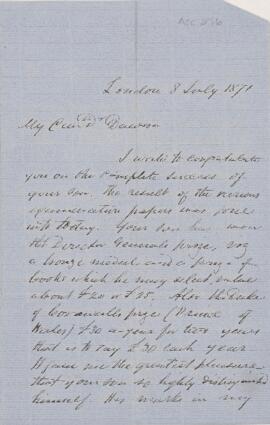 London 8 July 1871
My Dear Dr Dawson
I write to congratulate
you on the complete success of
your son. The result of the various
examination papers was gone
into to day. Your son has won
the Director General's prize, viz
a bronze medal and a prize of
books which he may select, value
about £20 or £25. Also the Duke
of Cornwall's prize (Prince of
Wales) £30 a-year for two years
that is to say £30 each year
It gave me the greatest pleasure
that your son so highly distinguished
himself. His marks in my